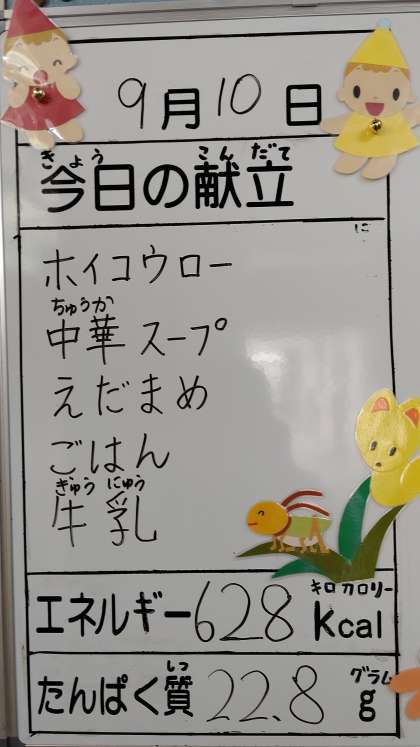 9月10日
きょう こんだて
今日の献立
に
ホイコウロー
ちゅうか
中華スープ
えだまめ
ごはん
ぎゅう にゅう
牛乳
キロカロリー
エネルギー628 kcal
しつ グラム
たんぱく質 22.8 g